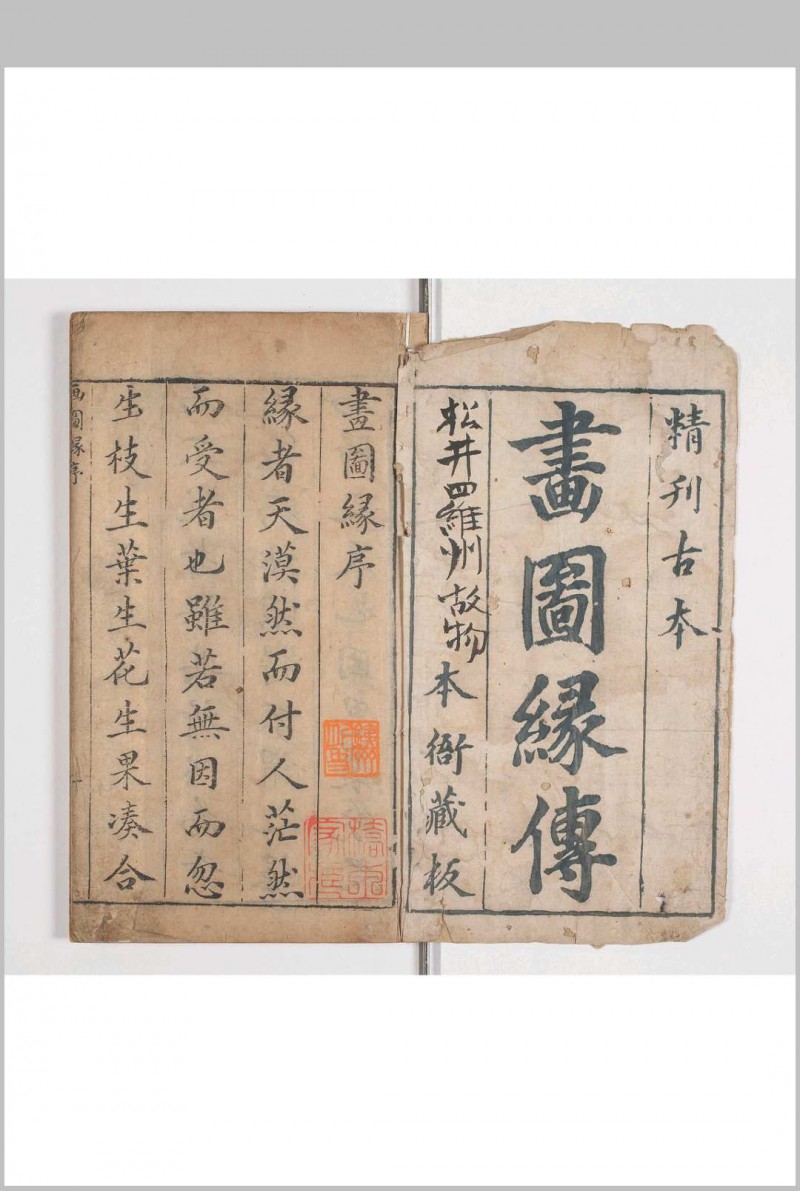 精刊古本
畫圖緣傳
松井羅州故物
本衙藏板
畫圖緣序
緣者天漠然而付人茫然
而受者也雖若無因而忽
生枝生葉生花生果凑合
画圖緣序